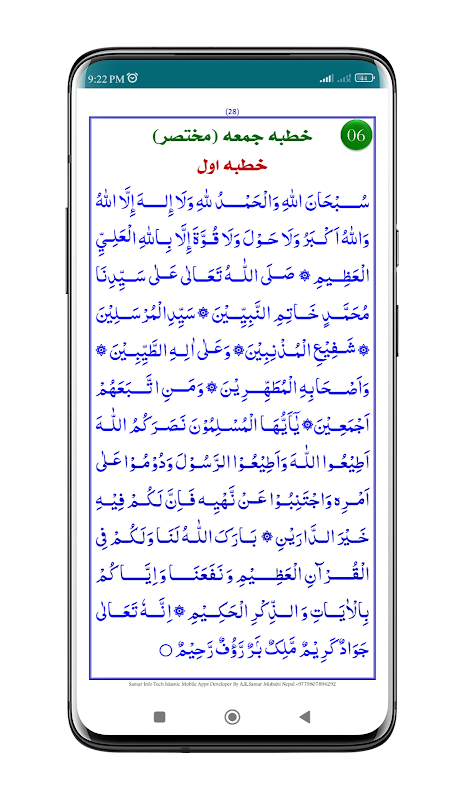 9:22 PM
44
(28)
خطبه جمعه (مختصر)
06
خطبه اول
سُبْحَانَ اللهِ وَالْحَمْدُ لِلّٰهِ وَلَا اِلٰهَ اِلَّا اللهُ
وَاللهُ اَكْبَرُ وَلَا حَوْلَ وَلَا قُوَّةَ اِلَّا بِاللهِ الْعَلِيِّ
الْعَظِيمِ ۞ صَلَى اللّٰهُ تَعَالٰى عَلٰى سَيِّدِنَا
مُحَمَّدٍ خَاتِمِ النَّبِيِّيْنَ ۞ سَيِّدِ الْمُرْسَلِيْنَ
۞ شَفِيْعِ الْمُذْنِبِيْنَ ۞ وَعَلٰى اٰلِهِ الطَّيِّبِيْنَ ۞
وَاَصْحَابِهِ الْمُطَهِّرِيْنَ ۞ وَمَنِ اتَّبَعَهُمْ
اَجْمَعِيْنَ ۞ يٰٓاَيُّهَا الْمُسْلِمُوْنَ نَصَرَكُمُ اللهَ
اَطِيْعُوا اللهَ وَاَطِيْعُوْا الرَّسُوْلَ وَدُوْمُوْا عَلٰى
اَمْرِهٖ وَاجْتَنِبُوْا عَنْ نَّهْيِهٖ فَاِنَّ لَكُمْ فِيْهِ
خَيْرَ الدَّارَيْنِ ۞ بَارَكَ اللّٰهُ لَنَا وَلَكُمْ فِى
الْقُرْآنِ الْعَظِيْمِ وَنَفَعَنَا وَاِيَّاكُمْ
بِالْاٰيَاتِ وَالذِّكْرِ الْحَكِيْمِ ۞ اِنَّهٗ تَعَالٰى
جَوَادٌ كَرِيْمٌ مَّلِكٌ بَرٌّ رَّؤُفٌ رَّحِيْمٌ ○
Samat Info Tech Islamic Mobile Apps Developer By A.R.Samar Misbahi Nepal +9779807896292